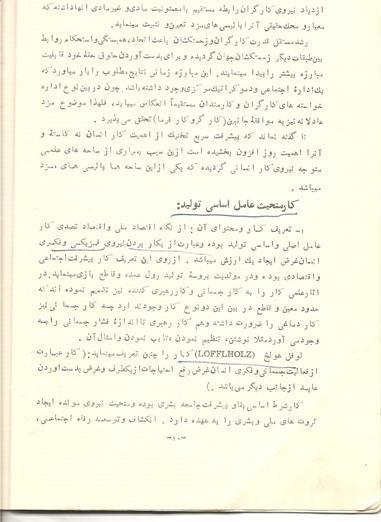 ازدیاد نیروی کارگران رابطه مستقیم با معنویت مادی و غیرمادی آنها داشته که
معیار و محک حقیقی آنرا پالیسی های مزد تعیین و تثبیت مینماید.
رشد مستقل قدرت کارگران و زحمتکشان باعث اتحاد، همبستگی و استحکام روابط
بین طبقات دیگر زحمتکشان جهان گردیده و برای بدست آوردن حقوق حقهٔ خود قابلیت
مبارزه بیشتر را پیدا مینمایند. این مبارزه زمانی نتایج مطلوب را ببار میاورد که
یک ادارهٔ اجتماعی و دموکراتیک سرکزی وجود داشته باشد. چون در بین نوع اداره
خواسته های کارگران و کارمندان مستقیماً انعکاس مییابد، فلهذا موضوع مزد
عادلانه نیز به موافقهٔ جانبین (کارگر و کار فرما) تحقق می پذیرد.
ناگفته نماند که پیشرفت سریع تخنیک از اهمیت کار انسان نه کاسته و
آنرا اهمیت روز افزون بخشیده است از این سبب بسیاری از ساحه های علمی
متوجه نیروی کار انسانی گردیده که یکی از این ساحه ها پالیسی های مزد
میباشد.
کار منحیث عامل اساسی تولید:
۱- تعریف کار و محتوای آن: از نگاه اقتصاد ملی و اقتصاد تصدی کار
عامل اصلی و اساسی تولید بوده و عبارت از بکار بردن نیروی فزیکی و فکری
انسان غرض ایجاد یک ارزش میباشد. از روی این تعریف کار پیشرفت اجتماعی
و اقتصادی بوده و در مولدیت پروسهٔ تولید رول عمده و قاطع بازی مینماید. در
آثار علمی کار را به کار جسمانی و کار رهبری کننده نیز تقسیم نموده اند نه
حدود معین و قاطع در بین این دو نوع کار وجود ندارد چه کار جسمانی نیز
کار دماغی را ضرورت داشته و هم کار رهبری تا اندازهٔ فشار جسمانی را به
وجود می آورد مثلا نوشتن، تنظیم نمودن، تایپ نمودن و امثال آن.
لوفل هولخ (LOFFLHOLZ) کار را چنین تعریف مینماید: (کار عبارت
از فعالیت جسمانی و فکری انسان غرض رفع احتیاجات از یکطرف و غرض بدست آوردن
عاید از جانب دیگر می باشد.)
کار شرط اساسی بقا و پیشرفت جامعه بشری بوده و منحیث نیروی مولده ایجاد
ثروت های ملی و بشری را به عهده دارد. انکشاف و توسعه رفاه اجتماعی،
-۱۰-